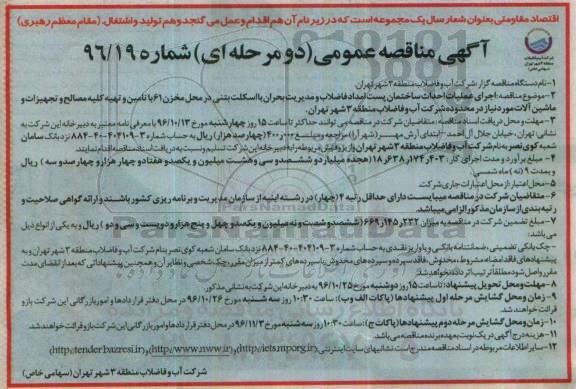 اقتصاد مقاومتی بعنوان شعار سال یک مجموعه است که در زیر نام آن هم اقدام و عمل می گنجد و هم تولید و اشتغال. (مقام معظم رهبری)
آگهی مناقصه عمومی (دو مرحله ای) شماره ۹۶/۱۹
شرکت آب و فاضلاب منطقه ۳ شهر تهران (سهامی خاص)
۱- نام دستگاه مناقصه گزار: شرکت آب و فاضلاب منطقه ۳ شهر تهران.
۲- موضوع مناقصه: اجرای عملیات احداث ساختمان پست امداد فاضلاب و مدیریت بحران با اسکلت بتنی در محل مخزن ۶۱ با تامین و تهیه کلیه مصالح و تجهیزات و
ماشین آلات مورد نیاز در محدوده شرکت آب و فاضلاب منطقه ۳ شهر تهران.
۳- مهلت و محل دریافت اسناد مناقصه: متقاضیان شرکت در مناقصه می توانند حداکثر تا ساعت ۱۵ روز چهارشنبه مورخ ۹۶/۱۰/۱۳ با معرفی نامه معتبر به دبیرخانه این شرکت به
نشانی: تهران، خیابان جلال آل احمد - ابتدای ارش مهر - (شهرآرا) مراجعه و مبلغ ۴۰۰،۰۰۰ (چهارصد هزار) ریال به حساب شماره ۳-۴۰۲۱۰۹-۴۰-۸۸۴ نزد بانک سامان
شعبه کوی نصر به نام شرکت آب و فاضلاب منطقه ۳ شهر تهران واریز و فیش مربوطه را به دبیرخانه این شرکت تسلیم و نسبت به دریافت اسناد مناقصه اقدام نمایند.
۴- مبلغ برآورد و مدت اجرای کار: ۱۸،۶۳۸،۱۷۴،۴۰۳ (هجده میلیارد و ششصد و سی و هشت میلیون و یکصد و هفتاد و چهار هزار و چهارصد و سه) ریال
و بمدت ۹ (نه) ماه شمسی.
۵- محل اعتبار: از محل اعتبارات جاری شرکت
۶- متقاضیان شرکت در مناقصه میبایست دارای حداقل رتبه ۴ (چهار) در رشته ابنیه از سازمان مدیریت و برنامه ریزی کشور باشند و ارائه گواهی صلاحیت و
رتبه بندی از سازمان مذکور الزامی میباشد.
۷- مبلغ تضمین شرکت در مناقصه به میزان ۶۶۹،۱۴۵،۲۳۲ (ششصد و شصت و نه میلیون و یکصد و چهل و پنج هزار و دویست و سی و دو) ریال و به یکی از انواع ذیل
می باشد:
-چک بانکی تضمینی، ضمانتنامه بانکی و یا واریز نقدی به حساب شماره ۳-۴۰۲۱۰۹-۴۰-۸۸۴ نزد بانک سامان شعبه کوی نصر بنام شرکت آب و فاضلاب منطقه ۳ شهر تهران و به
پیشنهادهای فاقد امضاء، مشروط، مخدوش، فاقد سپرده و سپرده های مخدوش یا سپرده های کمتر از میزان مقرر، چک شخصی و نظایر آن و همچنین پیشنهاداتی که بعد از انقضای مدت
مقرر واصل شود مطلقا ترتیب اثر داده نخواهد شد.
۸- مهلت و محل تحویل پیشنهاد: تا ساعت ۱۵ روز دوشنبه مورخ ۹۶/۱۰/۲۵ به دبیرخانه این شرکت به نشانی مذکور.
۹- زمان و محل گشایش مرحله اول پیشنهادها (پاکات الف و ب): ساعت ۱۰:۳۰ روز سه شنبه مورخ ۹۶/۱۰/۲۶ در محل دفتر قراردادها و امور بازرگانی این شرکت باز و
قرائت خواهند شد.
۱۰- زمان و محل گشایش مرحله دوم پیشنهادها (پاکات ج): ساعت ۱۰:۳۰ روز سه شنبه مورخ ۹۶/۱۱/۳ در محل دفتر قراردادها و امور بازرگانی این شرکت باز و قرائت خواهند شد.
۱۱- هزینه درج آگهی در یک نوبت به عهده برنده مناقصه می باشد.
۱۲- سایر اطلاعات مربوطه در اسناد مناقصه مندرج است نشانیهای سایت اینترنتی (http://iets.mporg.ir) و (http://www.nww.ir) و (http://tender.bazresi.ir)
شرکت آب و فاضلاب منطقه ۳ شهر تهران (سهامی خاص)